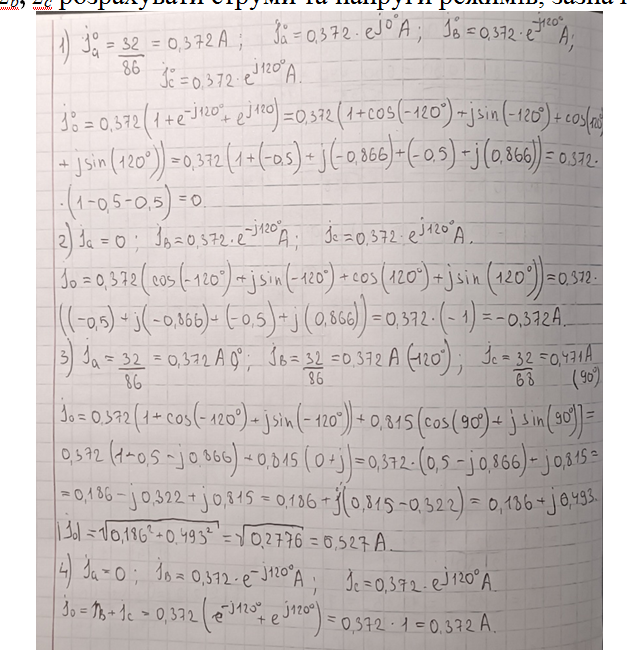 розрахувати струми та напруги режимів, зазна
1) İₐ = 32/86 = 0,372 A ; İₐ = 0,372 · e^j0° A ; İ_B = 0,372 · e^-j120° A;
İ_C = 0,372 · e^j120° A.
İ₀ = 0,372 (1 + e^-j120° + e^j120) = 0,372 (1 + cos(-120°) + j sin(-120°) + cos(120°)
+ j sin(120°)) = 0,372 (1 + (-0,5) + j(-0,866) + (-0,5) + j(0,866)) = 0,372 ·
· (1 - 0,5 - 0,5) = 0.
2) İₐ = 0 ; İ_B = 0,372 · e^-j120° A ; İ_C = 0,372 · e^j120° A.
İ₀ = 0,372 (cos(-120°) + j sin(-120°) + cos(120°) + j sin(120°)) = 0,372 ·
((-0,5) + j(-0,866) + (-0,5) + j(0,866)) = 0,372 · (-1) = -0,372 A.
3) İₐ = 32/86 = 0,372 A 0° ; İ_B = 32/86 = 0,372 A (-120°) ; İ_C = 32/68 = 0,471 A
(90°)
İ₀ = 0,372 (1 + cos(-120°) + j sin(-120°)) + 0,815 (cos(90°) + j sin(90°)] =
0,372 (1 - 0,5 - j0,866) + 0,815 (0 + j) = 0,372 · (0,5 - j0,866) + j0,815 =
= 0,186 - j0,322 + j0,815 = 0,186 + j(0,815 - 0,322) = 0,186 + j0,493.
|İ₀| = √0,186² + 0,493² = √0,2776 = 0,527 A.
4) İₐ = 0 ; İ_B = 0,372 · e^-j120° A ; İ_C = 0,372 · e^j120° A.
İ₀ = İ_B + İ_C = 0,372 (e^-j120° + e^j120°) = 0,372 · 1 = 0,372 A.